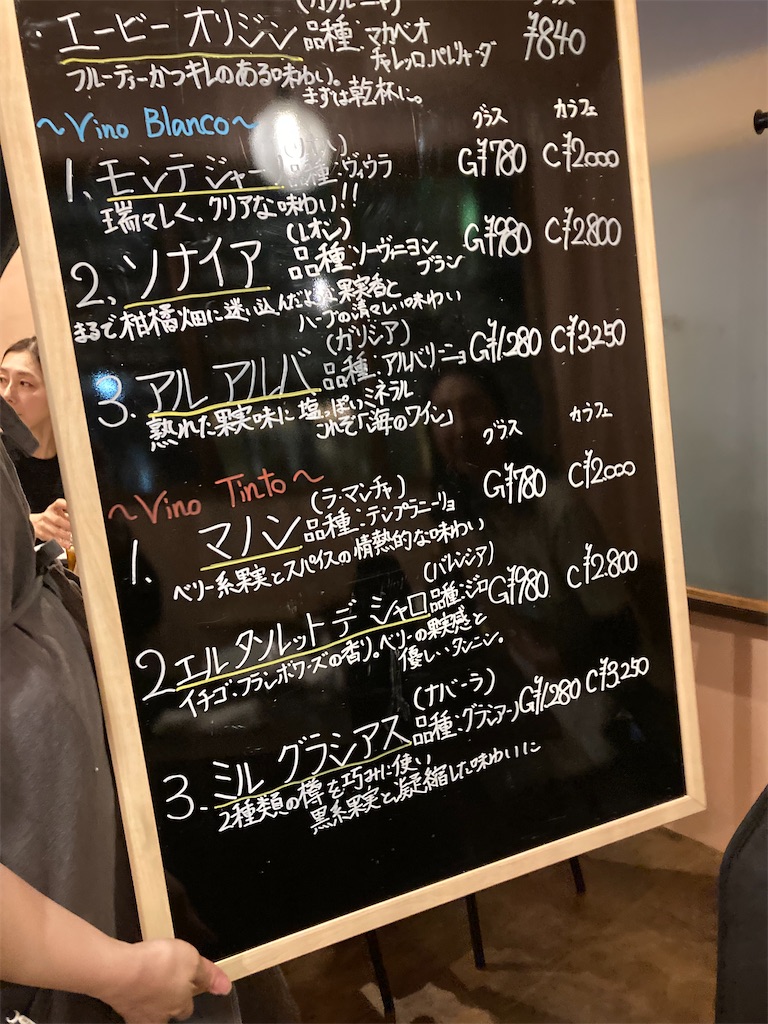 ・エービー オリジン 品種:マカベオ
チャレッロ、パレリャーダ ¥840
フルーティーかつキレのある味わい。
まずは乾杯に。
~Vino Blanco~ グラス カラフェ
1、モンテジャー 品種:ヴィウラ G¥780 C¥2000
瑞々しく、クリアな味わい!!
2、ソナイア (レオン) 品種:ソーヴィニヨン ブラン G¥980 C¥2.800
まるで柑橘畑に迷い込んだような果実香と
ハーブの清々しい味わい
3. アル アルバ (ガリシア) 品種:アルバリーニョ G¥1.280 C¥3.250
熟れた果実味に塩っぽいミネラル
これぞ「海のワイン」
~Vino Tinto~ グラス カラフェ
1. マノン (ラ・マンチャ) 品種:テンプラニーリョ G¥780 C¥2.000
ベリー系果実とスパイスの情熱的な味わい
2 エル タンレット デ シャロ (バレンシア) 品種:ジロ G¥980 C¥2.800
イチゴ・フランボワーズの香り。ベリーの果実感と
優しいタンニン。
3. ミル グラシアス (ナバーラ) 品種:グラシアーノ G¥1.280 C¥3.250
2種類の樽を巧みに使い
黒系果実と凝縮した味わいに